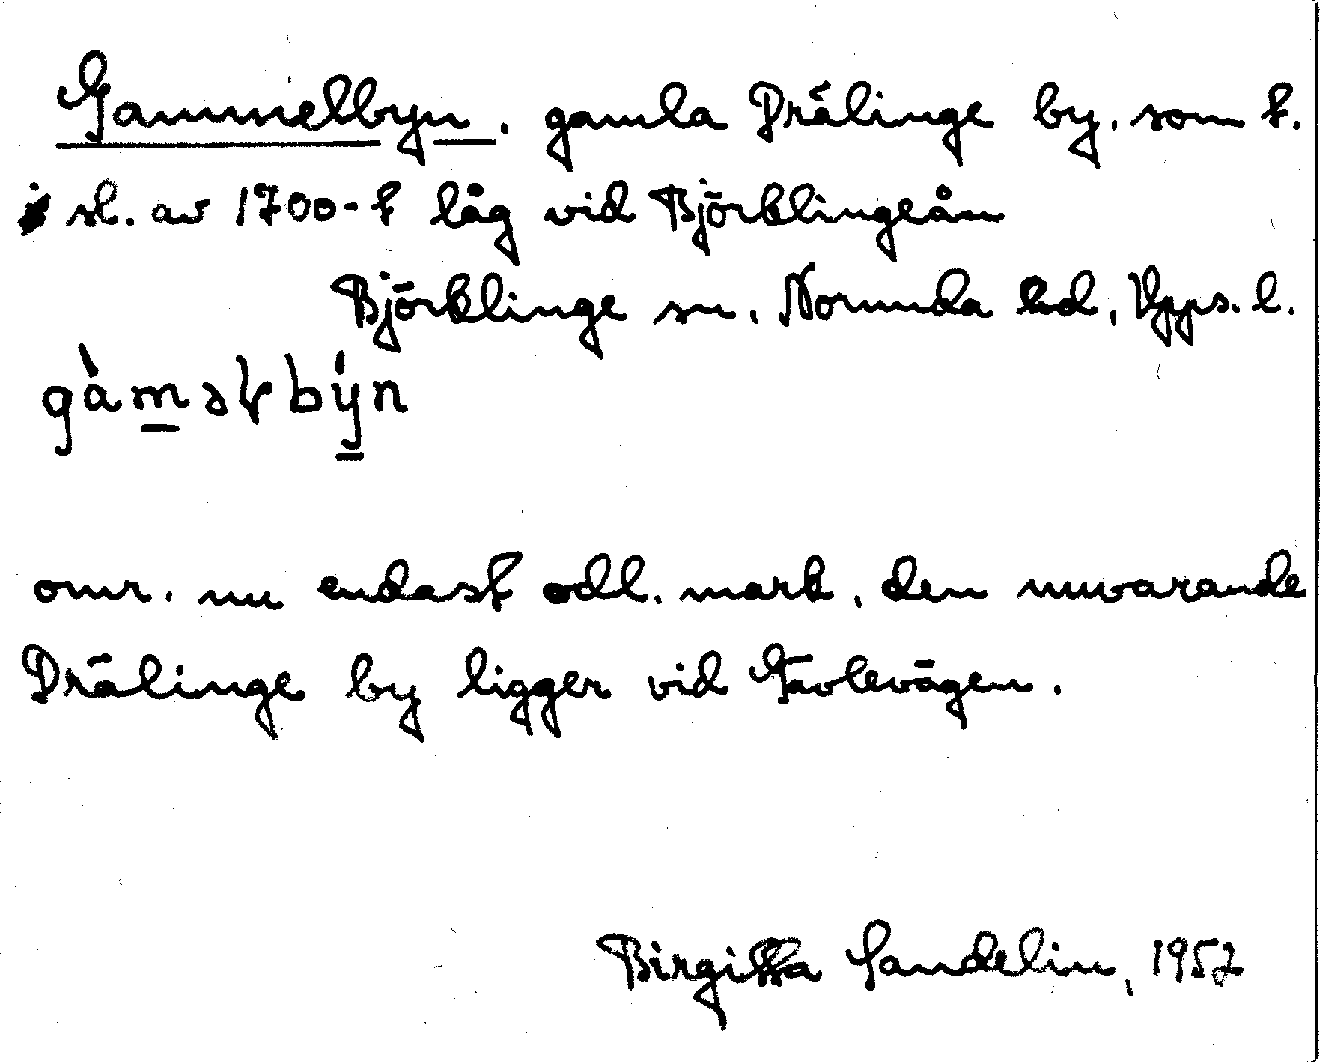 Gammelbyn, gamla Drälinge by, som t.
i sl. av 1700-t låg vid Björklingeån
Björklinge sn, Norunda hd, Upps. l.
gàməɫbýn
omr. nu endast odl. mark, den nuvarande
Drälinge by ligger vid Gävlevägen.
Birgitta Sandelin, 1957